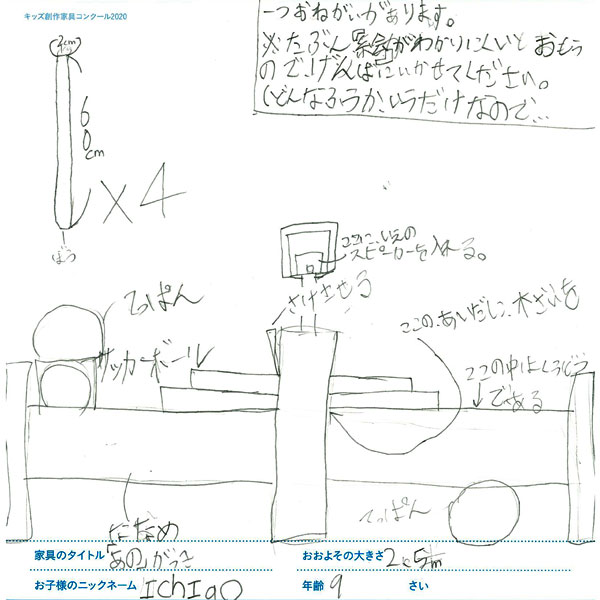 キッズ創作家具コンクール2020
一つおねがいがあります。
※たぶん
がわかりにくいとおもう
ので、げんばにいかせてください。
(どんなふうか、いうだけなので…
2cm
60cm
×4
ぼう
ここに、いえの
スピーカーを入れる。
さけさせる
てっぱん
サッカーボール
ここの、あいだに、木ざいを
ここの中は
である
てっぱん
ななめ
家具のタイトル
おおよその大きさ
お子様のニックネーム IchIao
年齢 9 さい